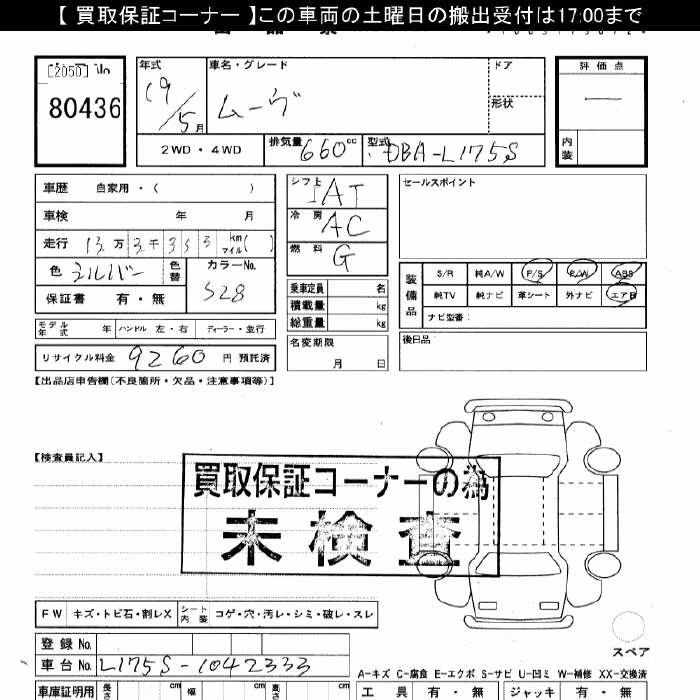 【 買取保証コーナー 】この車両の土曜日の搬出受付は17:00まで
年式 車名・グレード ドア 評価点
[2050]
80436 19/5月 ムーヴ 形状 ―
2WD・4WD 排気量 660cc 型式 DBA-L175S 内装
車歴 自家用・( ) シフト IAT セールスポイント
車検 年 月 冷房 AC
走行 13万 3千 353 km マイル( ) 燃料 G
色 シルバー 色替 カラーNo. S28
装備品 S/R 純A/W P/S P/W ABS
保証書 有・無 乗車定員 名 純TV 純ナビ 革シート 外ナビ エアB
積載量 kg
総重量 kg ナビ型番:
モデル年式 年 ハンドル 左・右 ディーラー・並行 名変期限 月 日 後日品
リサイクル料金 9260 円 預託済
【出品店申告欄(不良箇所・欠品・注意事項等)】
【検査員記入】
買取保証コーナーの為
未検査
FW キズ・トビ石・割レX シート内装 コゲ・穴・汚レ・シミ・破レ・スレ
スペア
登録No.
車台No. L175S-1042333
A-キズ C-腐食 E-エクボ S-サビ U-凹ミ W-補修 XX-交換済
車庫証明用 長さ cm 幅 cm 高さ cm 工具 有・無 ジャッキ 有・無